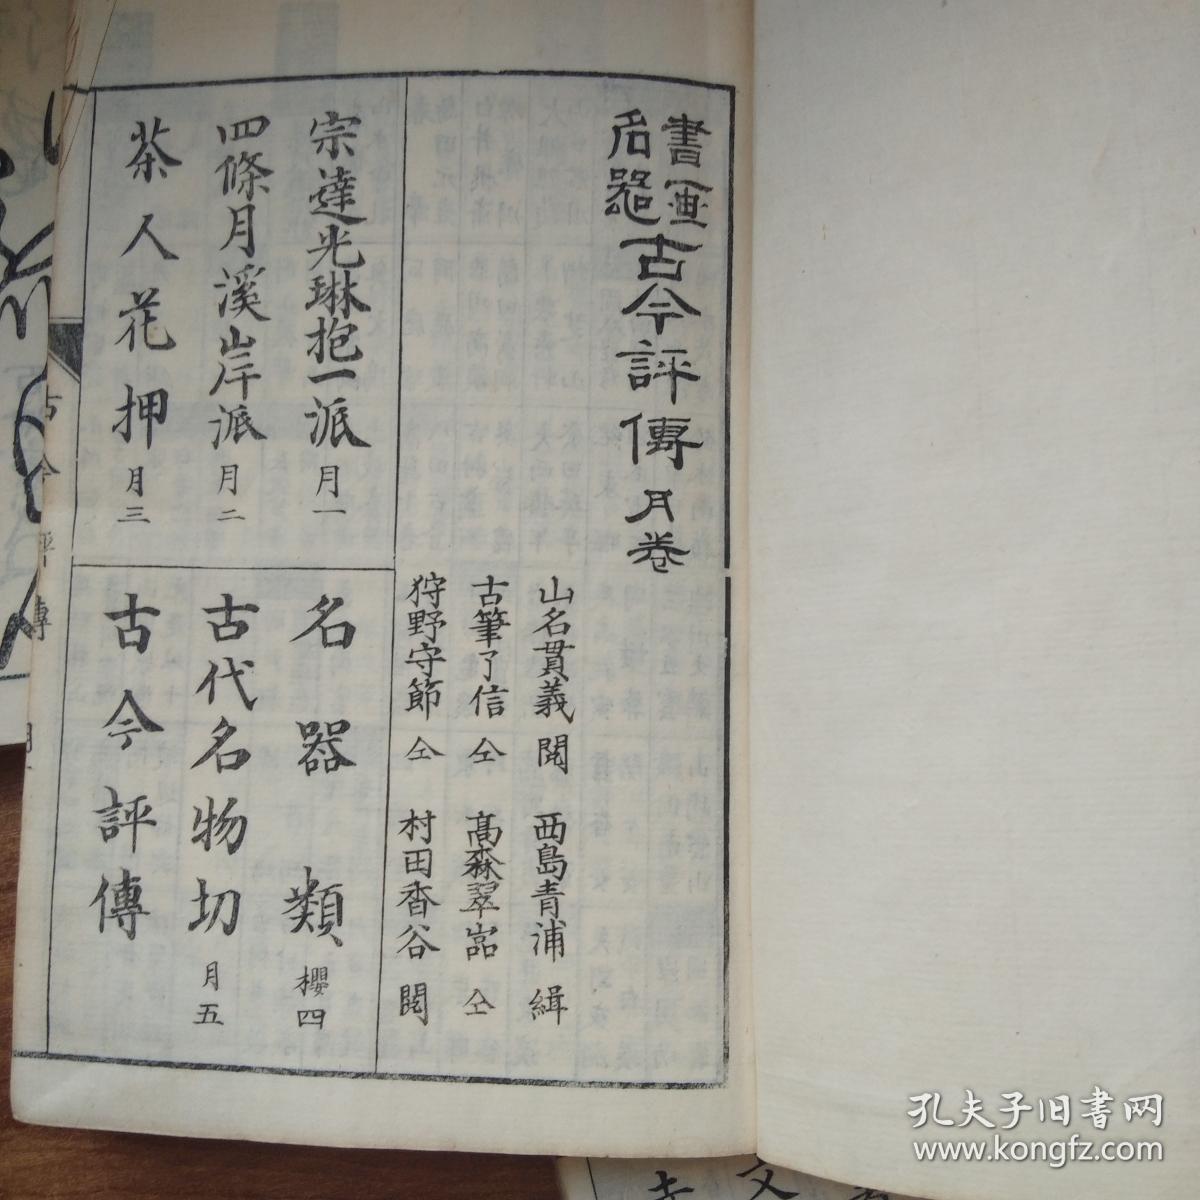 書畫名器古今評傳 月卷
山名貫義 閱
西島青浦 緝
古筆了信 仝
高森翠嵓 仝
狩野守節 仝
村田香谷 閱
宗達光琳抱一派 月一
四條月溪岸派 月二
茶人花押 月三
名器類 櫻四
古代名物切 月五
古今評傳
古今評傳
孔夫子旧书网
www.kongfz.com